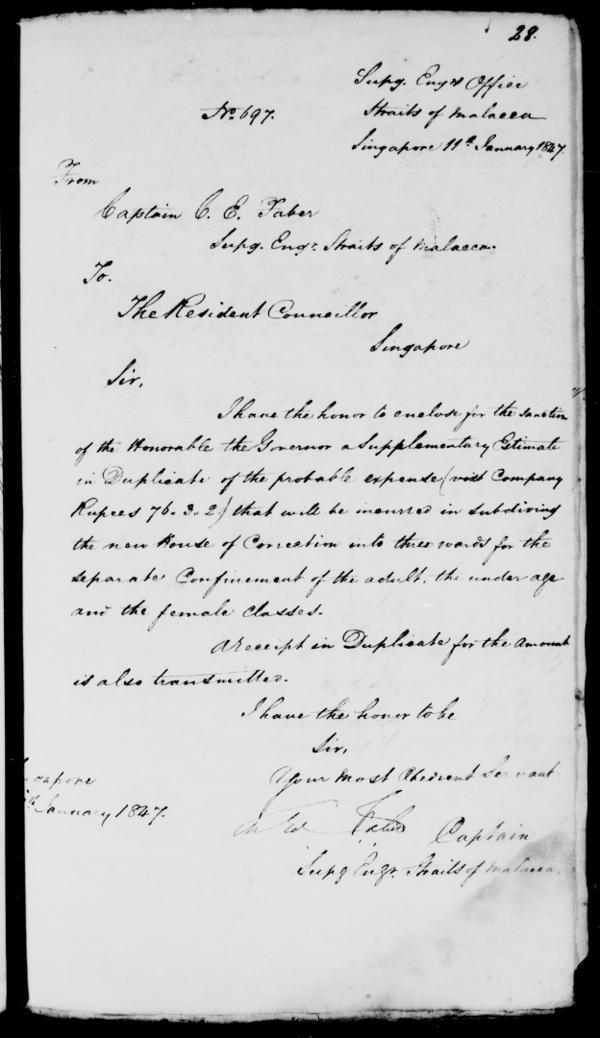 28.
Supg. Engrs Office
No. 697. Straits of Malacca
Singapore 11th January 1847.
From
Captain C. E. Faber
Supg. Engr. Straits of Malacca.
To.
The Resident Councillor
Singapore
Sir,
I have the honor to enclose for the sanction
of the Honorable the Governor a Supplementary Estimate
in Duplicate of the probable expense (vizt Company
Rupees 76.3.2.) that will be incurred in subdiving
the new House of Correction into three wards for the
separate Confinement of the adult, the under age
and the female classes.
A receipt in Duplicate for the Amount
is also transmitted.
I have the honor to be
Sir,
Your Most Obedient Servant
gapore
January 1847.
Faber Captain
Supg Engr. Straits of Malacca.